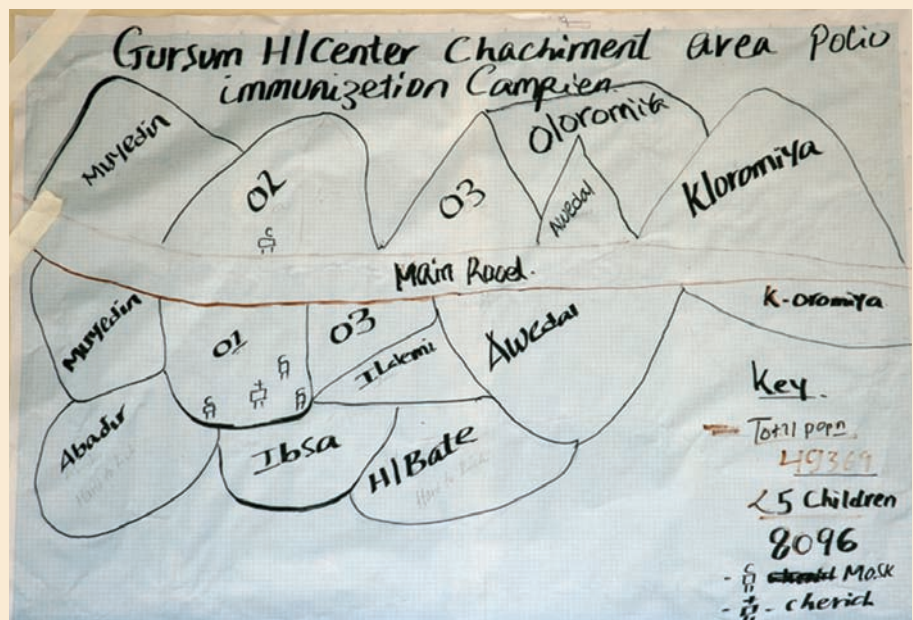 Gursum H/Center Chachiment area Polio
immunizetion Campien.
Muyedin
02
03
Oloromiya
Awedal
Kloromiya
Main Road.
Muyedin
01
03
Ildemi
Awedal
K-oromiya
Abadir
Ibsa
H/Bate
Key.
Totll popn.
49369
<5 Children
8096
- Mosk
- - cherich